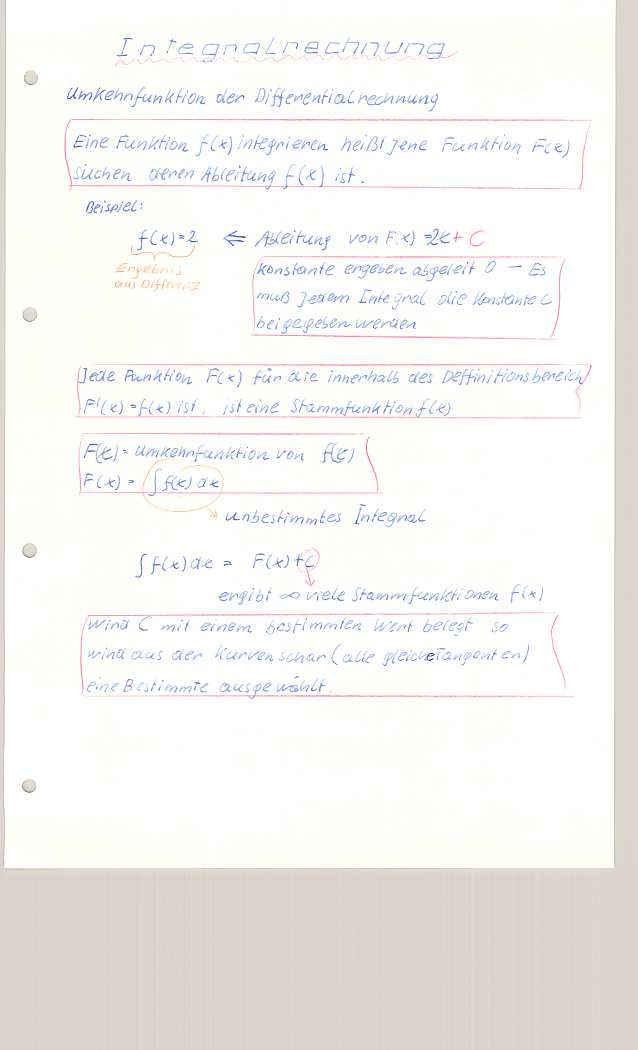 Integralrechnung
Umkehrfunktion der Differentialrechnung
Eine Funktion f(x) integrieren heißt jene Funktion F(x)
suchen deren Ableitung f(x) ist.
Beispiel:
f(x)=2 ⇐ Ableitung von F(x)=2x+C
Ergebnis
aus Differenz
Konstante ergeben abgeleit 0 – Es
muß jedem Integral die Konstante C
beigegeben werden
Jede Funktion F(x) für die innerhalb des Deffinitionsbereich
F'(x)=f(x) ist, ist eine Stammfunktion f(x)
F(x)= Umkehrfunktion von f(x)
F(x) = ∫f(x) dx
unbestimmtes Integral
∫f(x)dx = F(x)+C
ergibt ∞ viele Stammfunktionen f(x)
Wird C mit einem bestimmten Wert belegt so
wird aus der Kurvenschar (alle gleicheTangenten)
eine Bestimmte ausgewählt.